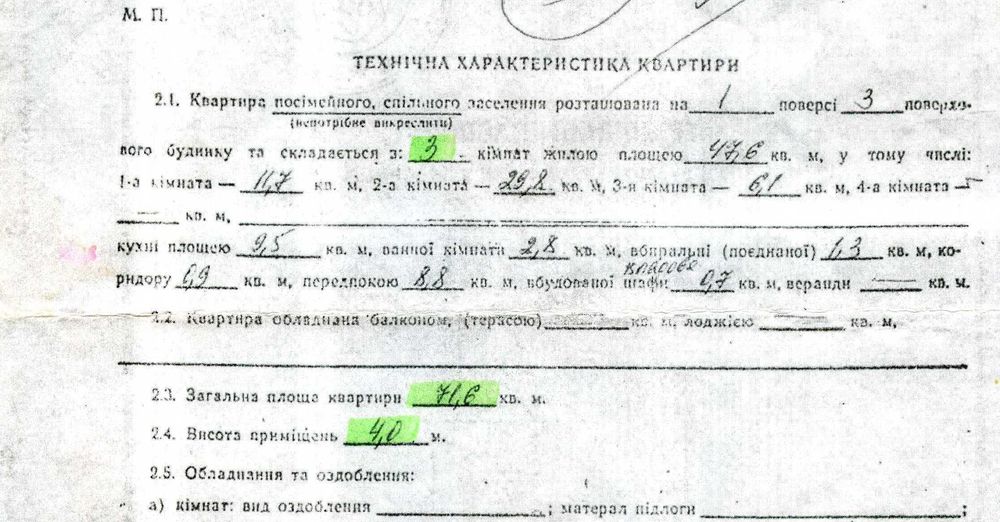 М. П.
ТЕХНІЧНА ХАРАКТЕРИСТИКА КВАРТИРИ
2.1. Квартира посімейного, спільного заселення розташована на 1 поверсі 3 поверхо-
(непотрібне викреслити)
вого будинку та складається з: 3 кімнат жилою площею 47,6 кв. м, у тому числі:
1-а кімната — 11,7 кв. м, 2-а кімната — 29,8 кв. м, 3-я кімната — 6,1 кв. м, 4-а кімната —
— кв. м,
кухні площею 9,5 кв. м, ванної кімнати 2,8 кв. м, вбиральні (поєднаної) 1,3 кв. м, ко-
ридору 0,9 кв. м, передпокою 8,8 кв. м, вбудованої шафи 0,7 кв. м, веранди — кв. м.
2.2. Квартира обладнана балконом, (терасою) кв. м, лоджією кв. м,
2.3. Загальна площа квартири 71,6 кв. м.
2.4. Висота приміщень 4,0 м.
2.5. Обладнання та оздоблення:
а) кімнат: вид оздоблення ; матерал підлоги ;